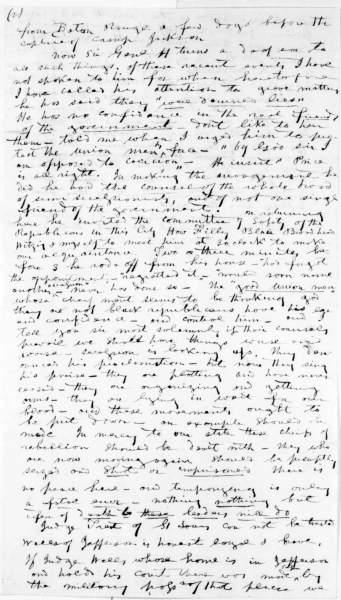 (2)
from Baton Rouge a few days before the
capture of Camp Jackson
Now Sir Genl H turns a deaf ear to
all such things, of these recent events I have
not spoken to him for when heretofore
I have called his attention to grave matters
he has said they "were damned lies"
He has no confidence in the real friends
of the government don't like to hear
them - told me when I urged him to pro
tect the Union men "
am opposed to coercion" - He insists Price
is all right. In making the arrangement he
did he had the counsel of the whole brood
of semi secessionists, and of not one single
friend of the government. on returning
here he invited the Committee of Safety of the
Republicans in this City How Filley Blair Broadhead
Witzig & myself to meet him at 3 oclock to make
our acquaintance two or three minutes be
fore 3 he rode off from his house - has forgot
the appointment - regretted it - would soon make
another occasion - never has done so - the "good Union men
whose chief merit seems to be thanking god
they are not black republicans have his ear
and confidence - and control him - and I
tell you sir most solemnly if their counsels
prevail we shall have things worse and
worse - secession is looking up. They den
ounced his proclamation - but now they sing
his praise - they are getting bolder now
- they are organizing and gathering
arms - they are lying in wait for our
blood - and these movements ought to
be put down - an example should be
made In mercy to our state these chiefs of
rebellion should be dealt with - they who
are now moving again should be promptly
seized and shot or imprisoned There is
no peace here - and temporizing is only
a nothing nothing but
death to these leaders will do
Judge Treat of St Louis can not be trusted
Wells of Jefferson is honest loyal & brave.
If Judge Wells whose home is in Jefferson
and holds his court there was made by
the military of that place we